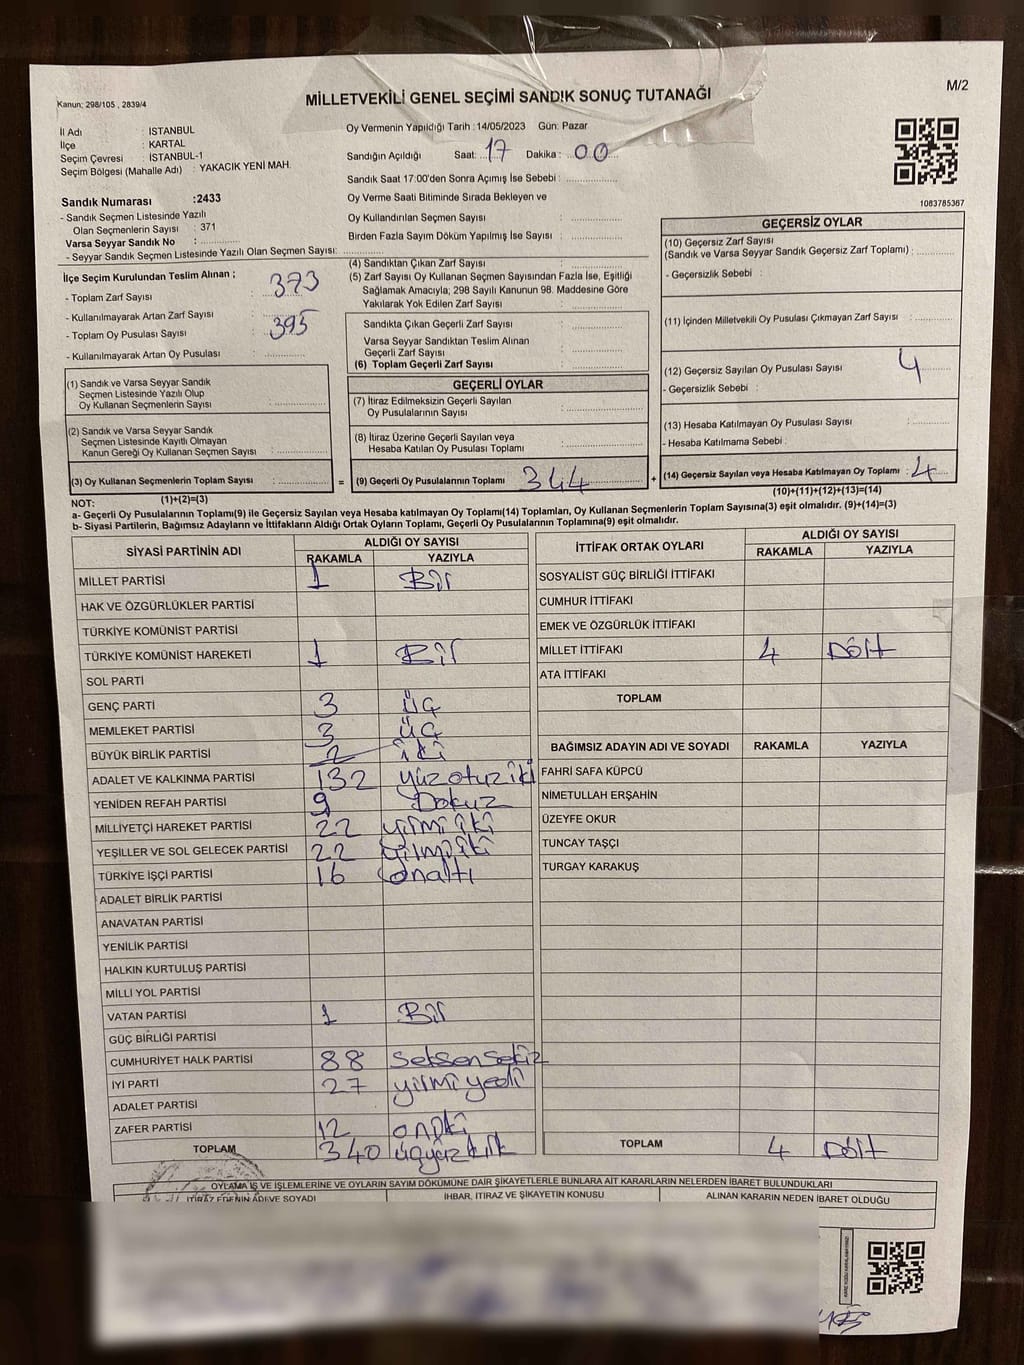 Kanun; 298/105 , 2839/4
MİLLETVEKİLİ GENEL SEÇİMİ SANDIK SONUÇ TUTANAĞI
M/2
İl Adı : İSTANBUL
İlçe : KARTAL
Seçim Çevresi : İSTANBUL-1
Seçim Bölgesi (Mahalle Adı) : YAKACIK YENİ MAH.
Sandık Numarası :2433
- Sandık Seçmen Listesinde Yazılı
Olan Seçmenlerin Sayısı : 371
Varsa Seyyar Sandık No :
- Seyyar Sandık Seçmen Listesinde Yazılı Olan Seçmen Sayısı:
Oy Vermenin Yapıldığı Tarih :14/05/2023 Gün: Pazar
Sandığın Açıldığı Saat: 17 Dakika: 00
Sandık Saat 17:00'den Sonra Açımış İse Sebebi :
Oy Verme Saati Bitiminde Sırada Bekleyen ve
Oy Kullandırılan Seçmen Sayısı :
Birden Fazla Sayım Döküm Yapılmış İse Sayısı :
1083785367
İlçe Seçim Kurulundan Teslim Alınan ;
- Toplam Zarf Sayısı : 373
- Kullanılmayarak Artan Zarf Sayısı :
- Toplam Oy Pusulası Sayısı : 395
- Kullanılmayarak Artan Oy Pusulası :
(1) Sandık ve Varsa Seyyar Sandık
Seçmen Listesinde Yazılı Olup
Oy Kullanan Seçmenlerin Sayısı :
(2) Sandık ve Varsa Seyyar Sandık
Seçmen Listesinde Kayıtlı Olmayan
Kanun Gereği Oy Kullanan Seçmen Sayısı :
(3) Oy Kullanan Seçmenlerin Toplam Sayısı :
(1)+(2)=(3)
(4) Sandıktan Çıkan Zarf Sayısı :
(5) Zarf Sayısı Oy Kullanan Seçmen Sayısından Fazla İse, Eşitliği
Sağlamak Amacıyla; 298 Sayılı Kanunun 98. Maddesine Göre
Yakılarak Yok Edilen Zarf Sayısı :
Sandıkta Çıkan Geçerli Zarf Sayısı :
Varsa Seyyar Sandıktan Teslim Alınan
Geçerli Zarf Sayısı :
(6) Toplam Geçerli Zarf Sayısı :
GEÇERLİ OYLAR
(7) İtiraz Edilmeksizin Geçerli Sayılan
Oy Pusulalarının Sayısı :
(8) İtiraz Üzerine Geçerli Sayılan veya
Hesaba Katılan Oy Pusulası Toplamı :
= (9) Geçerli Oy Pusulalarının Toplamı : 344 +
GEÇERSİZ OYLAR
(10) Geçersiz Zarf Sayısı
(Sandık ve Varsa Seyyar Sandık Geçersiz Zarf Toplamı) :
- Geçersizlik Sebebi :
(11) İçinden Milletvekili Oy Pusulası Çıkmayan Zarf Sayısı :
(12) Geçersiz Sayılan Oy Pusulası Sayısı : 4
- Geçersizlik Sebebi :
(13) Hesaba Katılmayan Oy Pusulası Sayısı :
- Hesaba Katılmama Sebebi :
(14) Geçersiz Sayılan veya Hesaba Katılmayan Oy Toplamı : 4
(10)+(11)+(12)+(13)=(14)
NOT:
a- Geçerli Oy Pusulalarının Toplamı(9) ile Geçersiz Sayılan veya Hesaba katılmayan Oy Toplamı(14) Toplamları, Oy Kullanan Seçmenlerin Toplam Sayısına(3) eşit olmalıdır. (9)+(14)=(3)
b- Siyasi Partilerin, Bağımsız Adayların ve İttifakların Aldığı Ortak Oyların Toplamı, Geçerli Oy Pusulalarının Toplamına(9) eşit olmalıdır.
SİYASİ PARTİNİN ADI ALDIĞI OY SAYISI
RAKAMLA YAZIYLA
MİLLET PARTİSİ 1 Bir
HAK VE ÖZGÜRLÜKLER PARTİSİ
TÜRKİYE KOMÜNİST PARTİSİ
TÜRKİYE KOMÜNİST HAREKETİ 1 Bir
SOL PARTİ
GENÇ PARTİ 3 üç
MEMLEKET PARTİSİ 3 üç
BÜYÜK BİRLİK PARTİSİ 2 iki
ADALET VE KALKINMA PARTİSİ 132 yüzotuziki
YENİDEN REFAH PARTİSİ 9 Dokuz
MİLLİYETÇİ HAREKET PARTİSİ 22 yirmiiki
YEŞİLLER VE SOL GELECEK PARTİSİ 22 yirmiiki
TÜRKİYE İŞÇİ PARTİSİ 16 onaltı
ADALET BİRLİK PARTİSİ
ANAVATAN PARTİSİ
YENİLİK PARTİSİ
HALKIN KURTULUŞ PARTİSİ
MİLLİ YOL PARTİSİ
VATAN PARTİSİ 1 Bir
GÜÇ BİRLİĞİ PARTİSİ
CUMHURİYET HALK PARTİSİ 88 seksensekiz
İYİ PARTİ 27 yirmiyedi
ADALET PARTİSİ
ZAFER PARTİSİ 12 oniki
TOPLAM 340 üçyüzkırk
İTTİFAK ORTAK OYLARI ALDIĞI OY SAYISI
RAKAMLA YAZIYLA
SOSYALİST GÜÇ BİRLİĞİ İTTİFAKI
CUMHUR İTTİFAKI
EMEK VE ÖZGÜRLÜK İTTİFAKI
MİLLET İTTİFAKI 4 Dört
ATA İTTİFAKI
TOPLAM
BAĞIMSIZ ADAYIN ADI VE SOYADI RAKAMLA YAZIYLA
FAHRİ SAFA KÜPCÜ
NİMETULLAH ERŞAHİN
ÜZEYFE OKUR
TUNCAY TAŞÇI
TURGAY KARAKUŞ
TOPLAM 4 Dört
OYLAMA İŞ VE İŞLEMLERİNE VE OYLARIN SAYIM DÖKÜMÜNE DAİR ŞİKAYETLERLE BUNLARA AİT KARARLARIN NELERDEN İBARET BULUNDUKLARI
İTİRAZ EDENİN ADI VE SOYADI İHBAR, İTİRAZ VE ŞİKAYETİN KONUSU ALINAN KARARIN NEDEN İBARET OLDUĞU